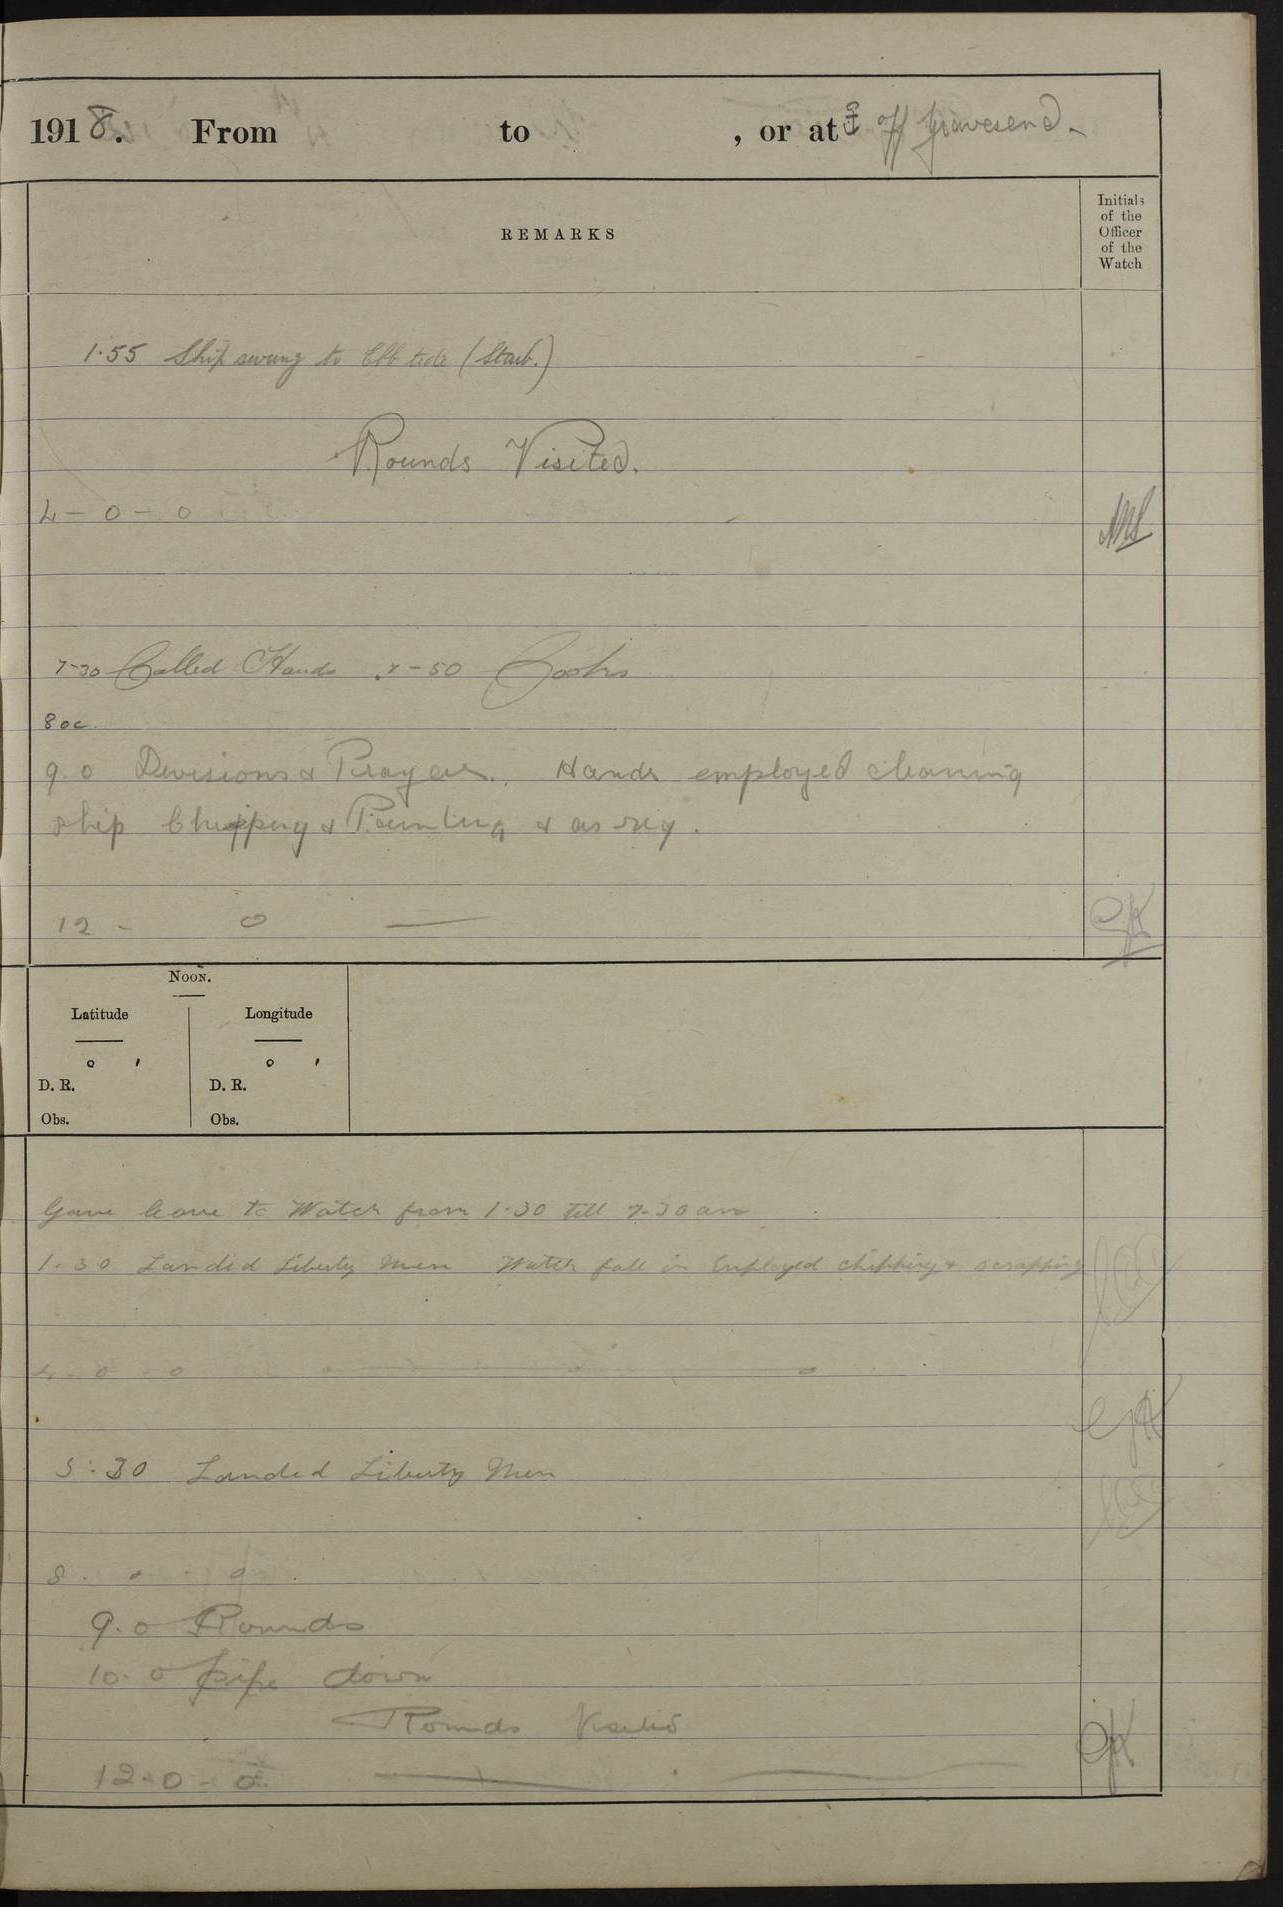 1918. From to , or at ⚓ off Gravesend.
REMARKS
Initials
of the
Officer
of the
Watch
1.55 Ship swung to Ebb tide (Starb.)
Rounds Visited.
4 - 0 - 0
7-30 Called Hands . 7-50 Cooks
8 oc.
9.0 Devisions & Prayers. Hands employed cleaning
ship Chipping & Painting & as req.
12 - 0
Noon.
Latitude Longitude
° ′ ° ′
D. R. D. R.
Obs. Obs.
Gave leave to Watch from 1.30 till 7-30 am
1.30 Landed Liberty Men Watch fall in Employed chipping & scrapping
4 . 0 . 0
5:30 Landed Liberty Men
8 . 0 . 0
9.0 Rounds
10.0 pipe down
Rounds Visited
12-0-0